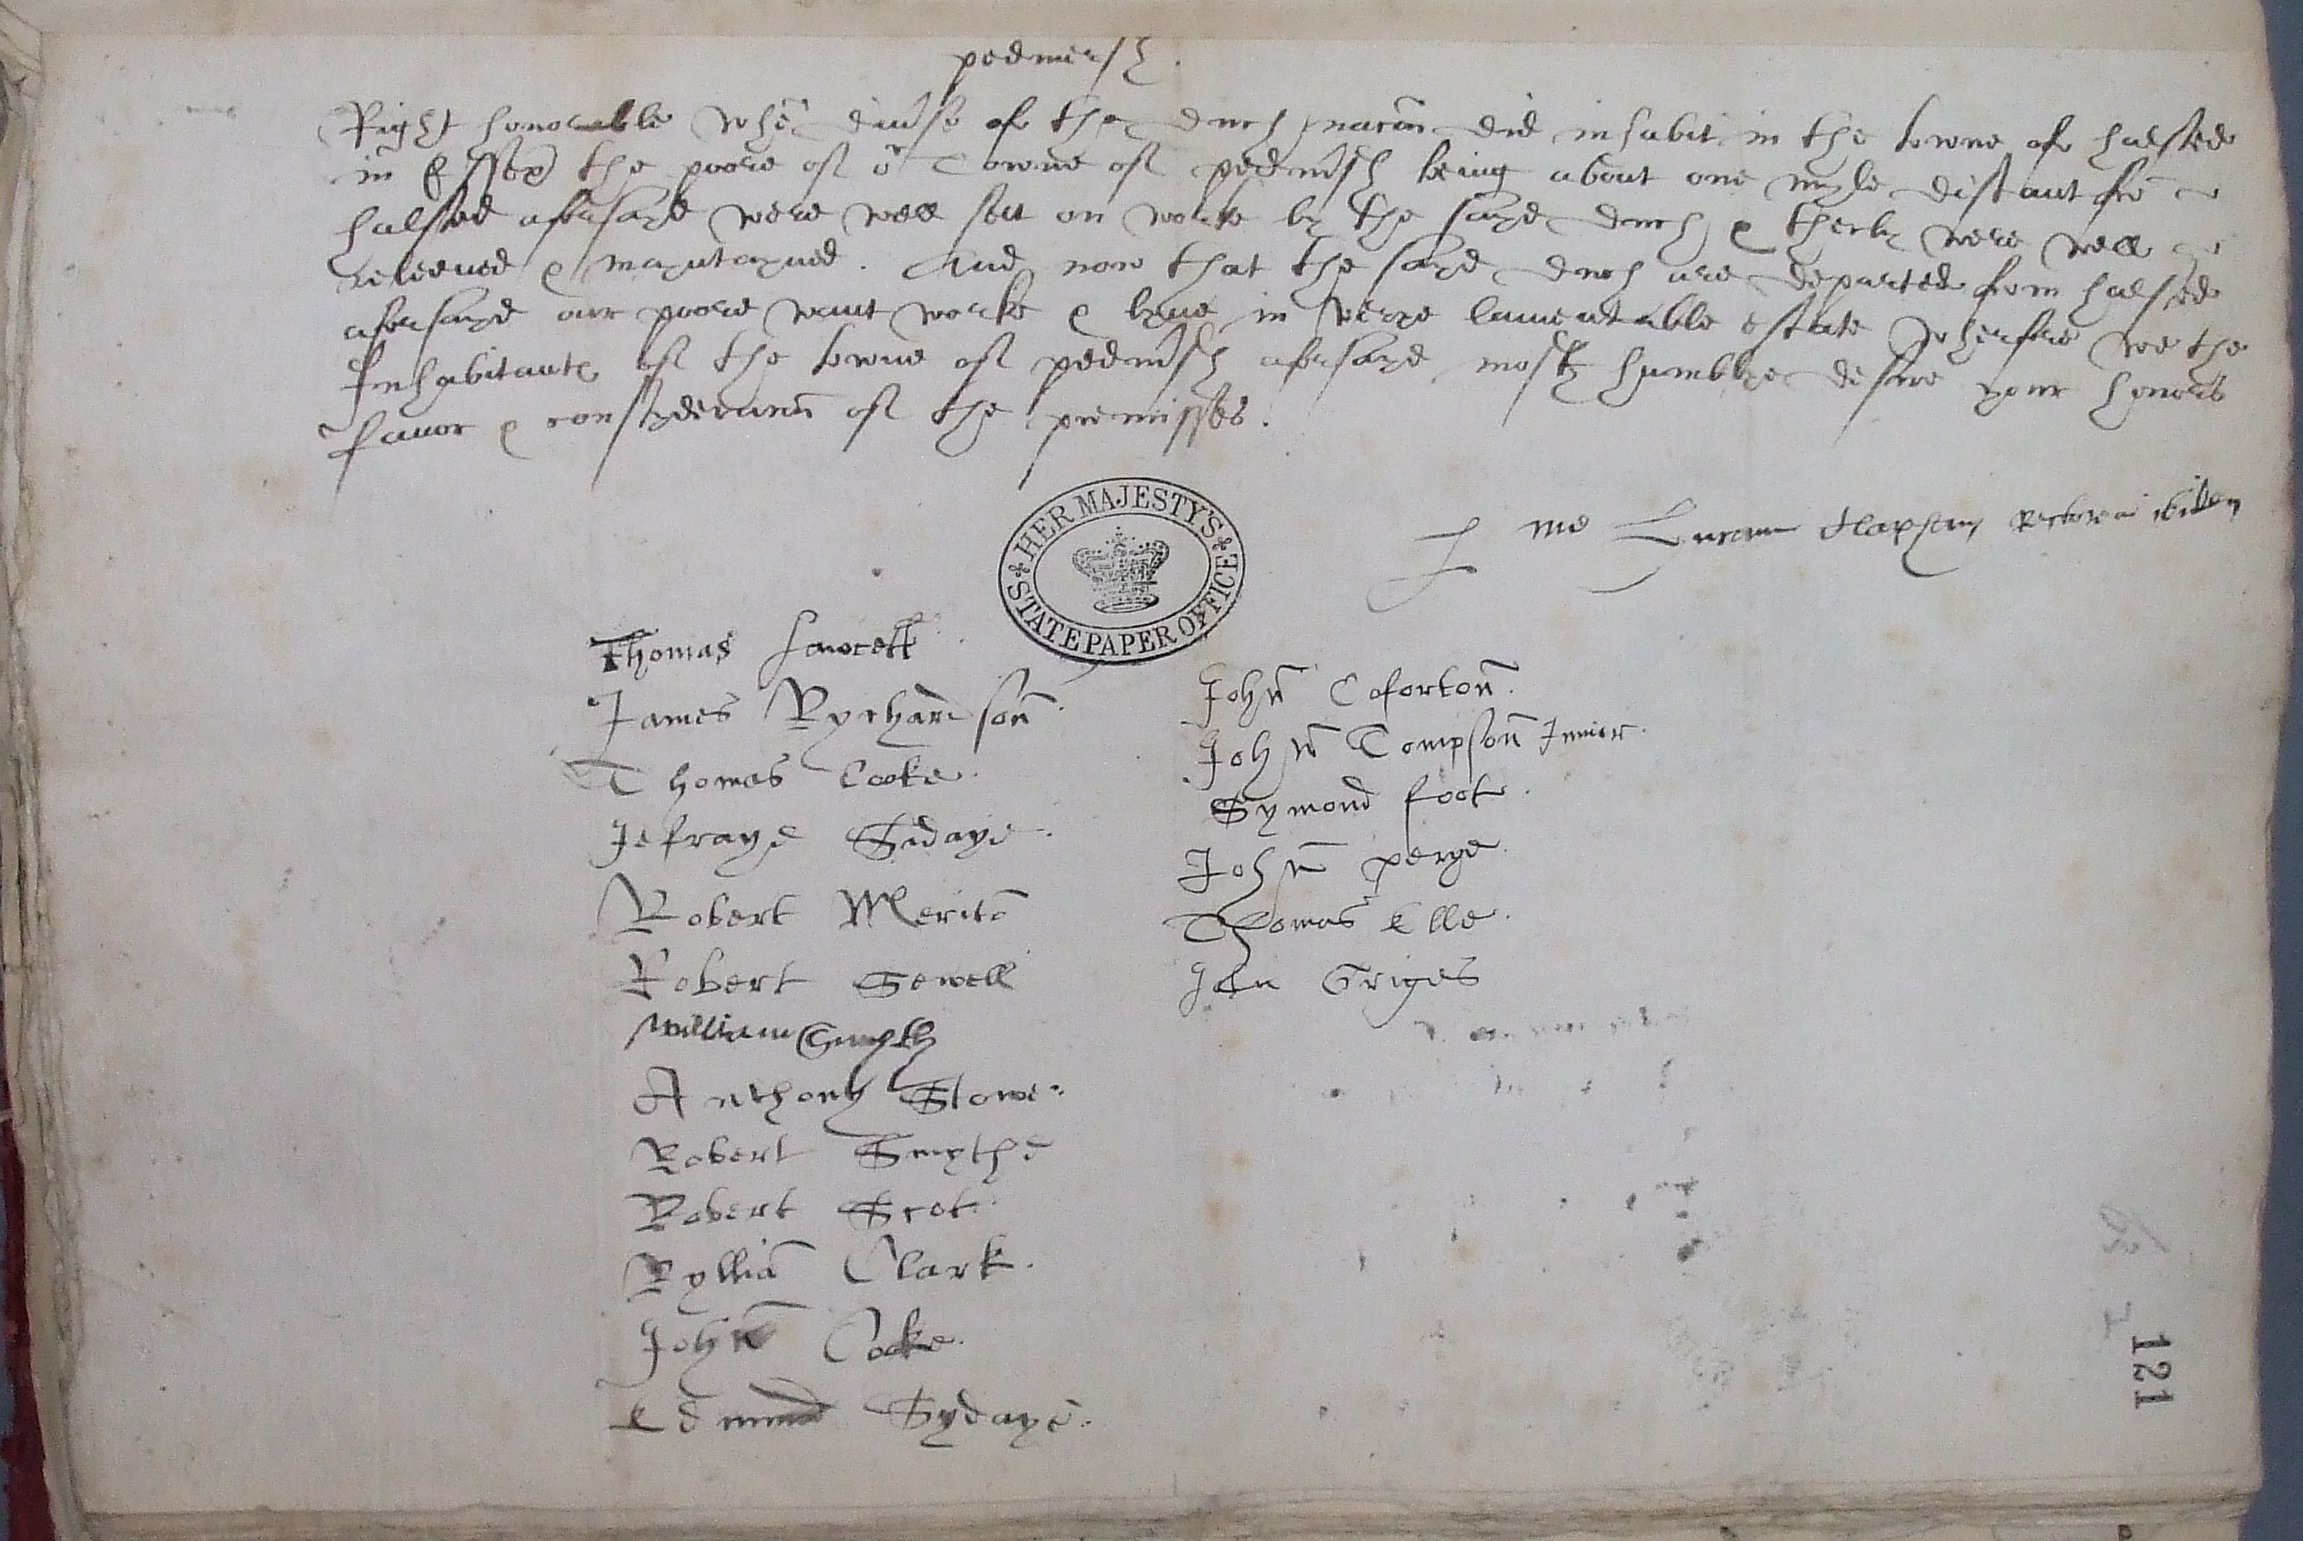 pedmersh.
Right honorable whē diu'se of the duch nacōn did inhabit in the towne of halsted
in Essex the poore of or Towne of pedm'sh being about one myle distant frō
halsted aforsayd were well sett on worke by the sayd duch & therby were well
releeued & mayntayned. And now that the sayd duch are departed from halsted
aforsayd our poore want worke & lyue in verye lamentable estate wherfore we the
Inhabitants of the towne of pedm'sh aforsayd most humblye desire your honors
fauor & consyderacōn of the premisses.
HER MAJESTY'S STATE PAPER OFFICE
me rectorem ibidem
Thomas fawcett
James Rychardsoñ
Thomas Cooke.
Jefraye Sidaye.
Robert Meritō
Robert Sewell
William Smyth
Anthony Stowe.
Robert Smythe
Robert Scot.
Wylliā Clark.
Johñ Cooke.
Edmund Sydaye.
Johñ Cofortoñ.
Johñ Tompsoñ Junior.
Symond foot.
Johñ perye.
Thomas Elle.
Jon Griges
121